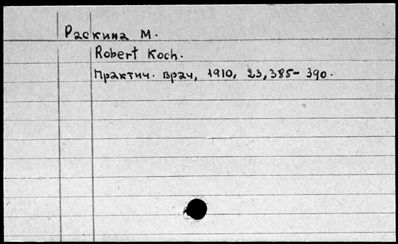 Раскина М.
Robert Koch.
Практич. врач, 1910, 23, 385-390.